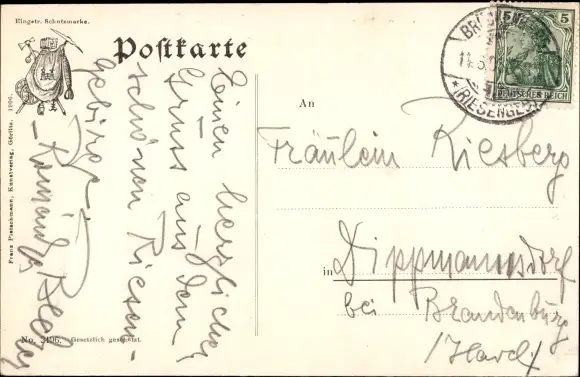 Eingetr. Schutzmarke.
Postkarte
Franz Pietschmann, Kunstverlag, Görlitz. 1906.
No. 3196. Gesetzlich geschützt.
Einen herzlichen
Gruss aus dem
schönen Riesen-
gebirge
An
Fräulein Riesberg
in Dippmannsdorf
bei Brandenburg
/Havel/
5
DEUTSCHES REICH
(RIESENGEB.)